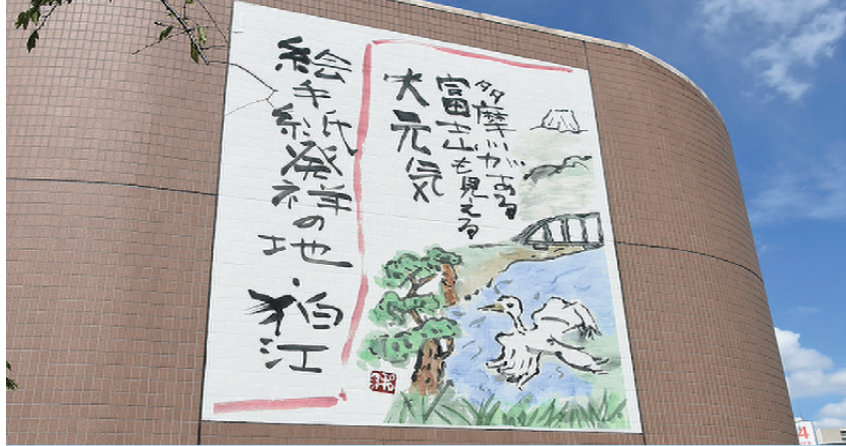 多摩川がある
富士山も見える
大元気
絵手紙発祥の地・狛江
4